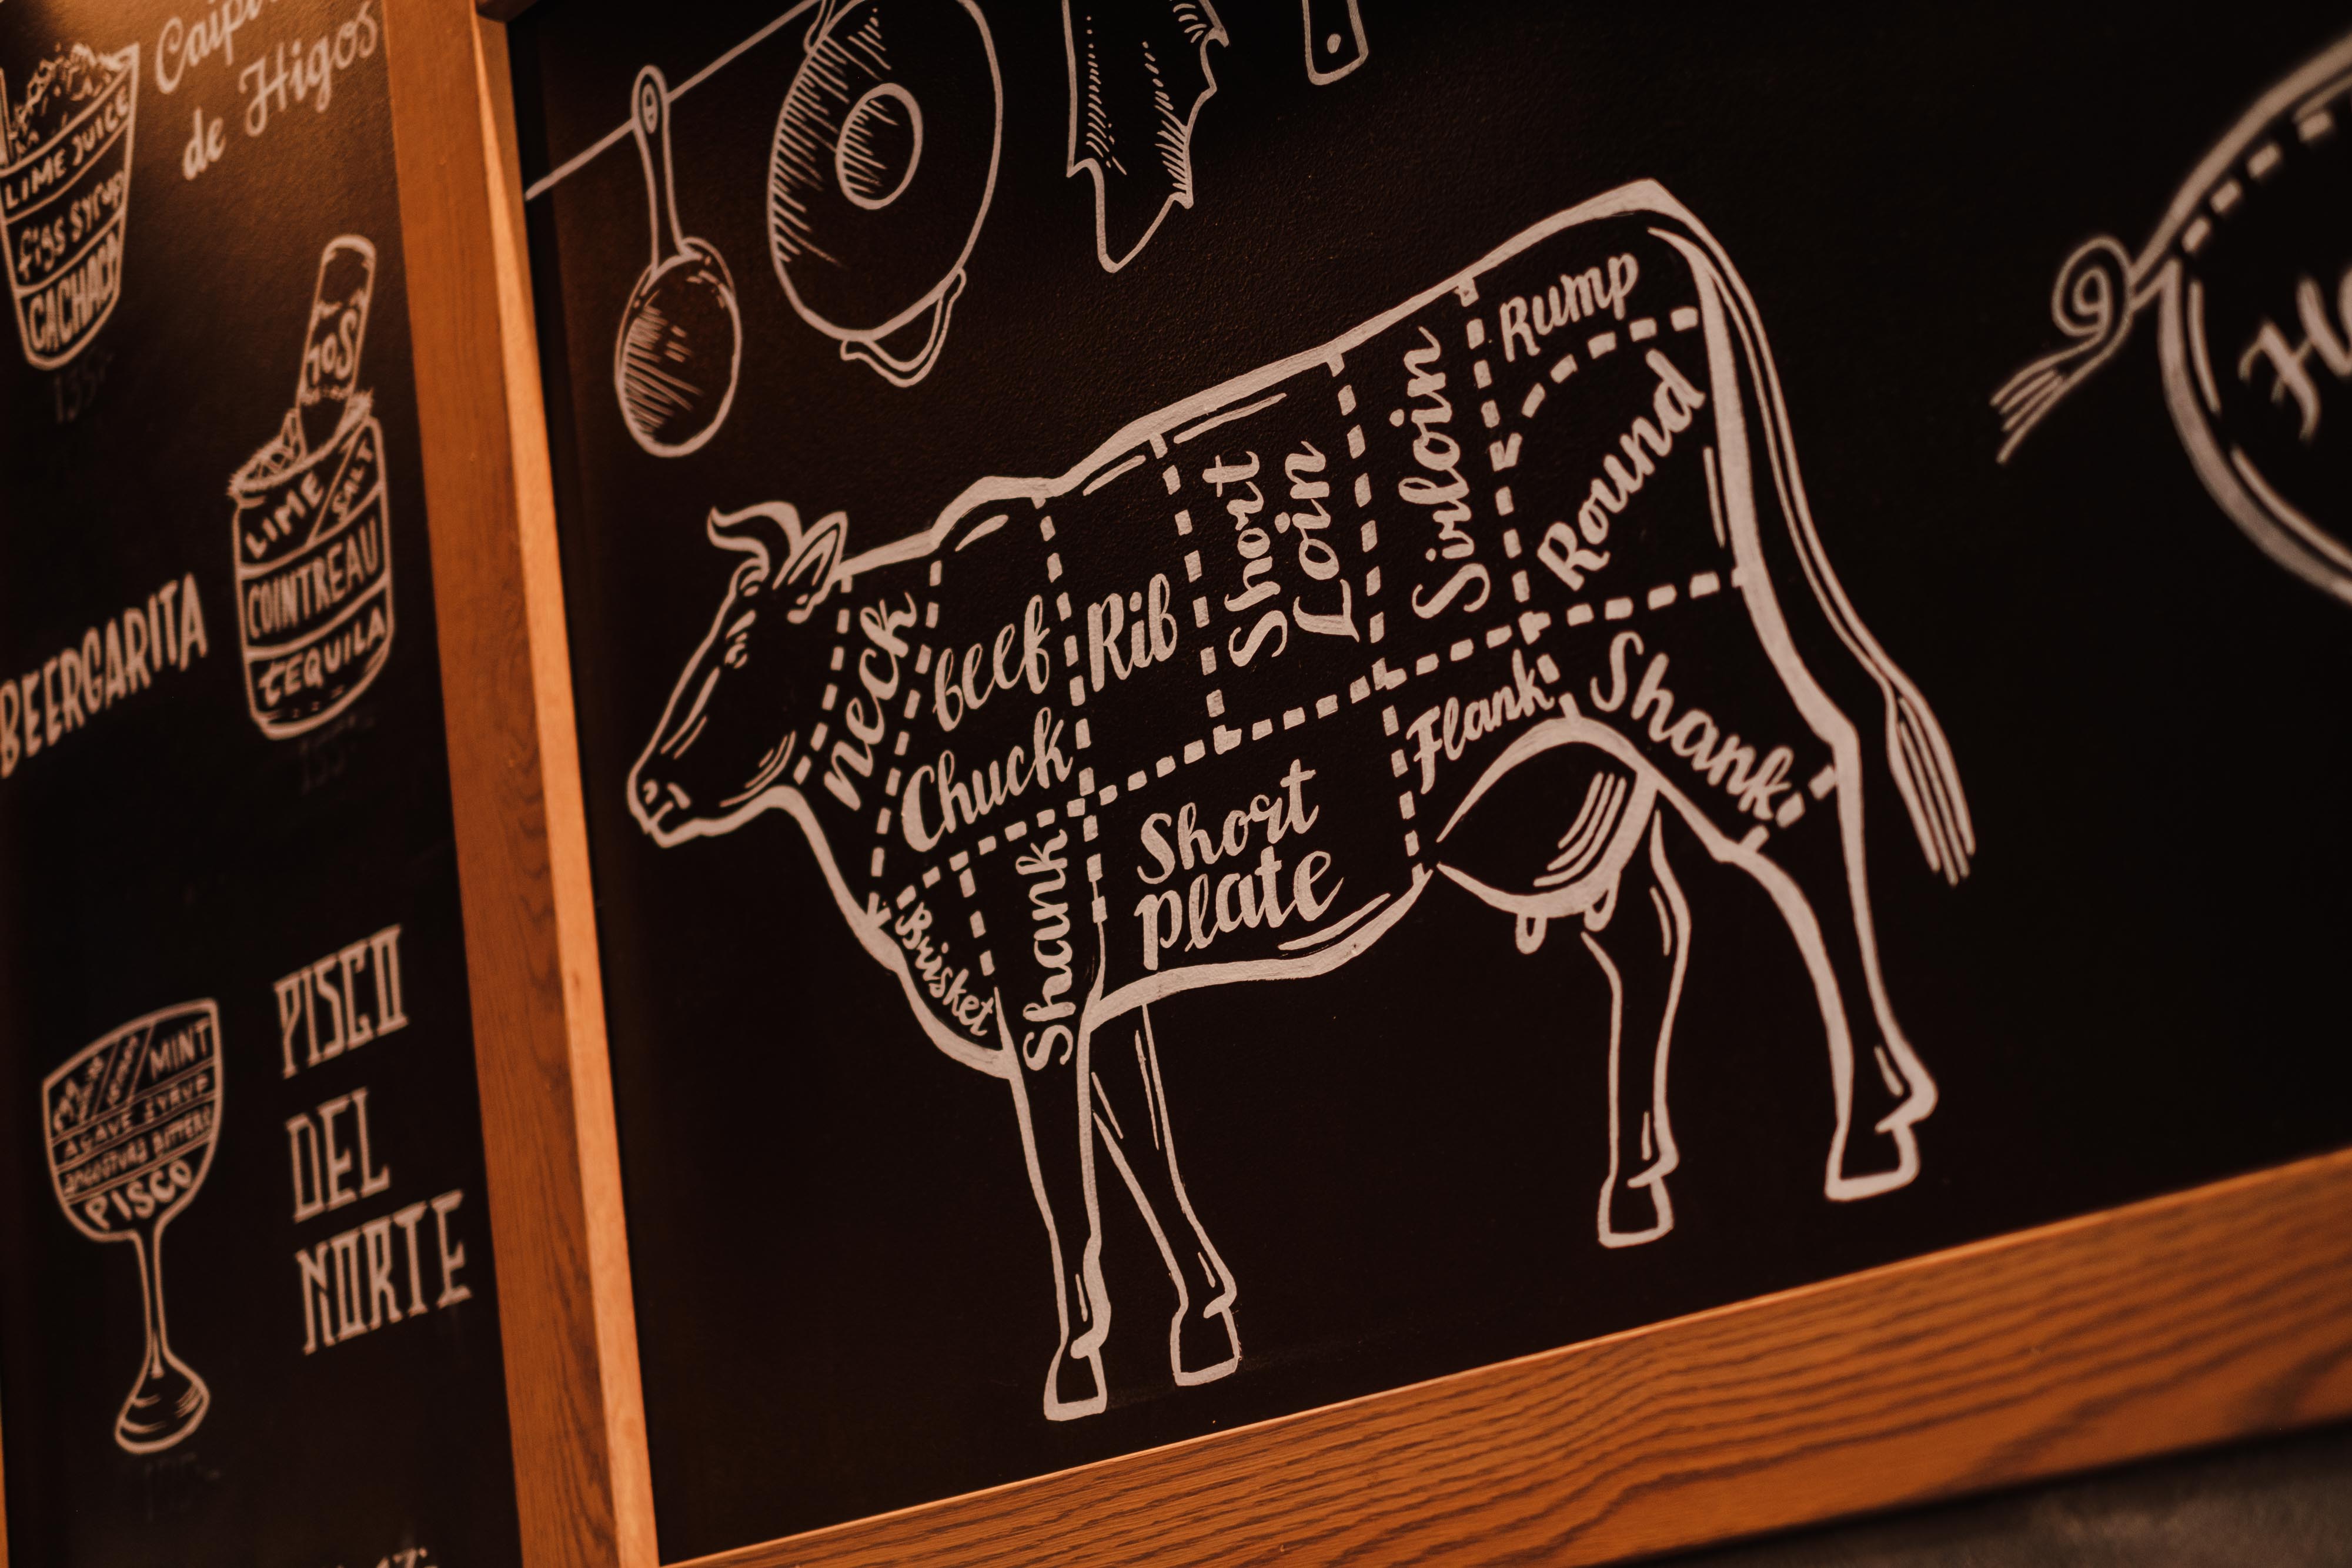 de Higos
LIME JUICE
figs syrup
CACHACA
LIME
SALT
COINTREAU
TEQUILA
BEERGARITA
MINT
AGAVE SYRUP
ANGOSTURA BITTERS
PISCO
PISCO
DEL
NORTE
neck
beef
Chuck
Rib
Short
Loin
Sirloin
Rump
Round
Brisket
Shank
Short
plate
Flank
Shank